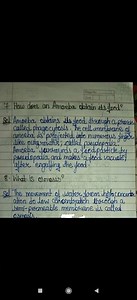 7. How does an Amoeba obtain its food?
Sol. Amoeba obtains its food through a process
called phagocytosis. The cell membrane of
amoeba is protruded into numerous finger
like outgrowths, called pseudopodia.
Amoeba surrounds a food particle by
pseudopodia and makes a food vacuole
after engulfing the food.
8. What is osmosis?
Sol. The movement of water from high concentr-
ation to low concentration through a
semi-permeable membrane is called
osmosis.